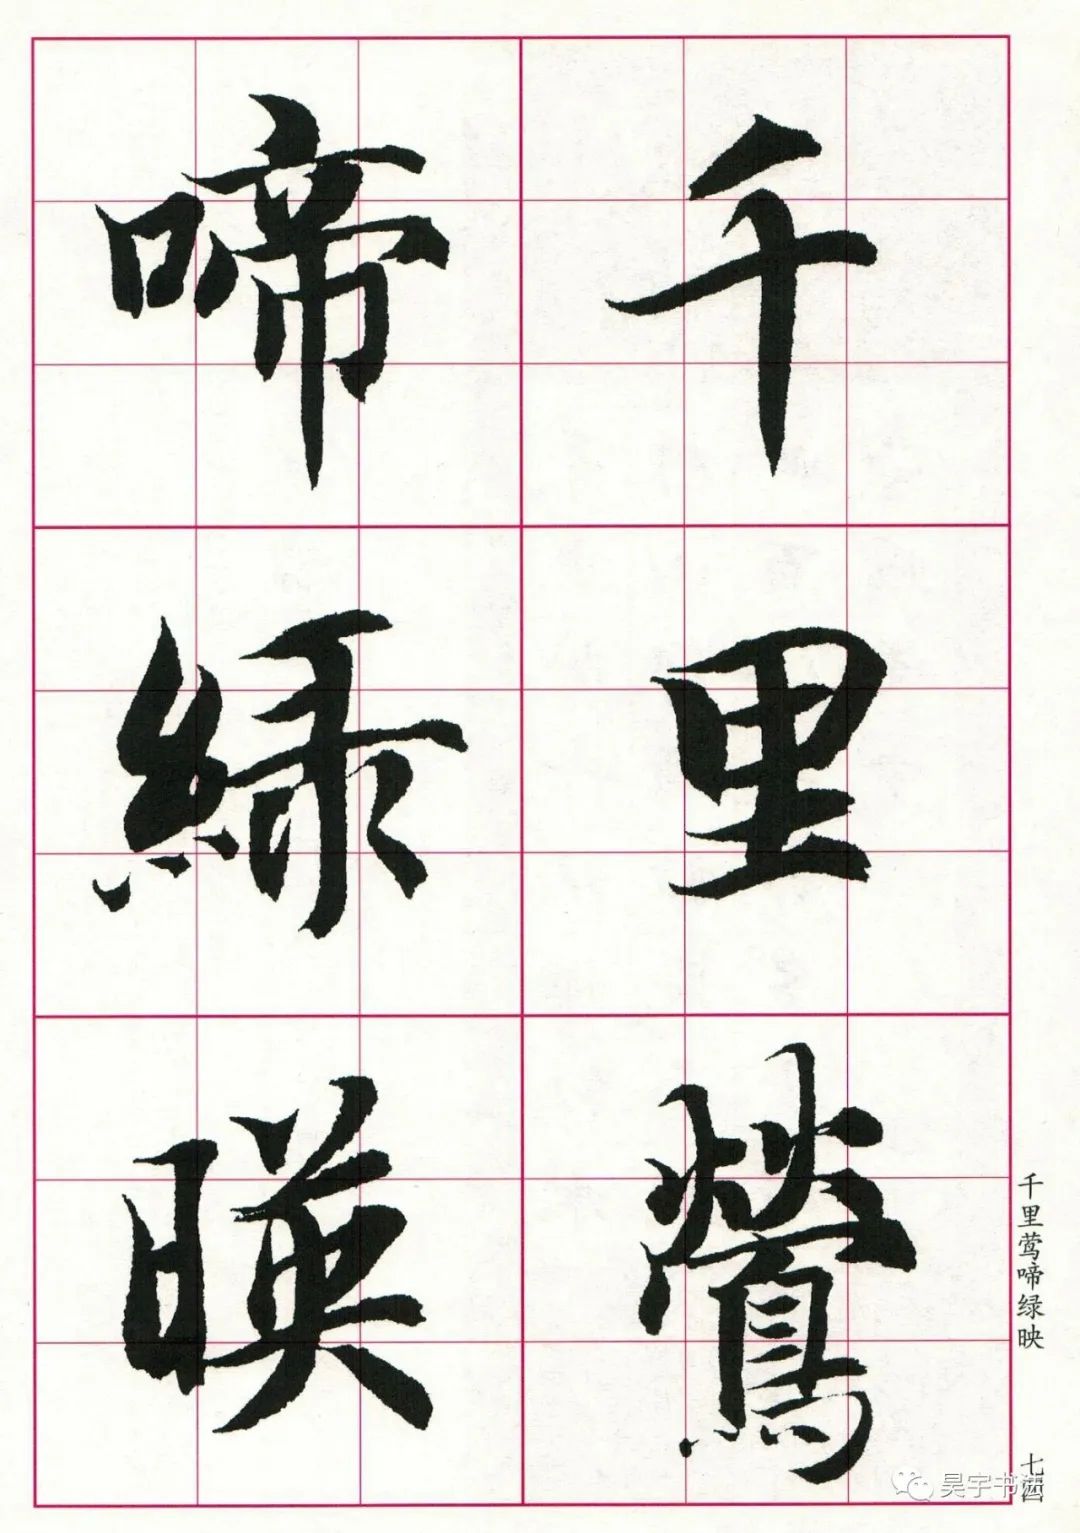 千里鶯
啼綠暎
千里莺啼绿映
七四
昊宇书法